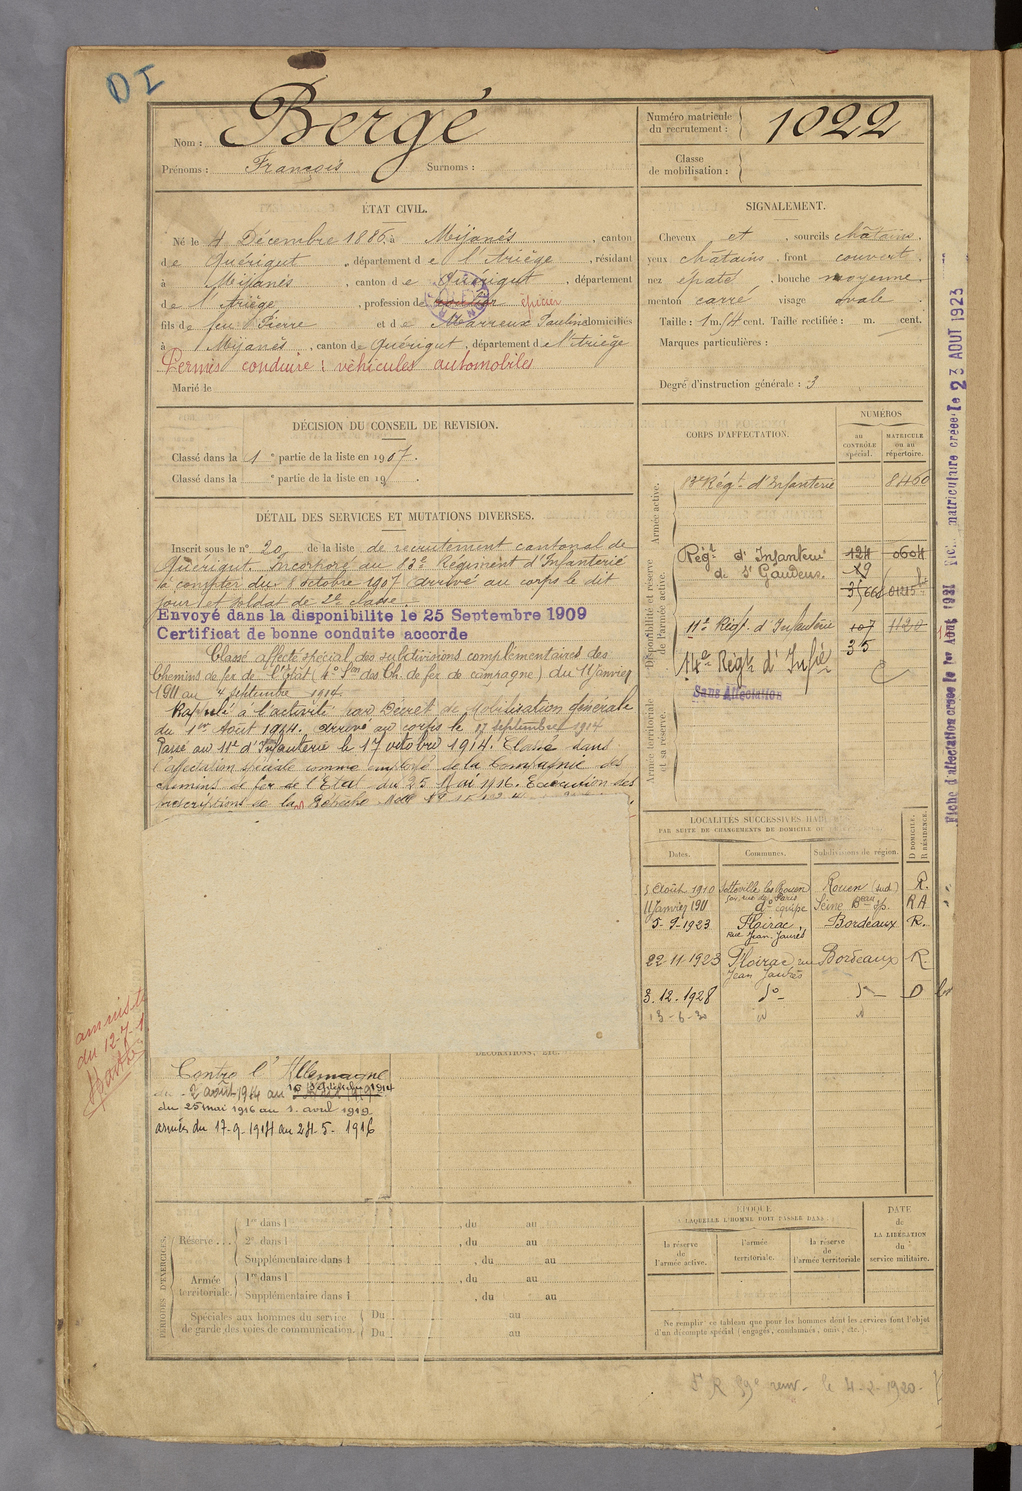 DI
Nom : Bergé
Prénoms : François Surnoms :
Numéro matricule du recrutement : 1022
Classe de mobilisation :
ÉTAT CIVIL.
Né le 4 Décembre 1886, à Mijanès, canton
de Quérigut, département de l'Ariège, résidant
à Mijanès, canton de Quérigut, département
de l'Ariège, profession de épicier
fils de feu Pierre et de Marreux Pauline domiciliés
à Mijanès, canton de Quérigut, département de l'Ariège
Permis conduire : véhicules automobiles
Marié le
SIGNALEMENT.
Cheveux et, sourcils châtains,
yeux châtains, front couvert,
nez épaté, bouche moyenne
menton carré visage ovale
Taille : 1 m. 54 cent. Taille rectifiée : m. cent.
Marques particulières :
Degré d'instruction générale : 3
DÉCISION DU CONSEIL DE REVISION.
Classé dans la 1e partie de la liste en 1907.
Classé dans la e partie de la liste en 19 .
DÉTAIL DES SERVICES ET MUTATIONS DIVERSES.
Inscrit sous le n° 20 de la liste de recrutement cantonal de
Quérigut. Incorporé au 83e Régiment d'Infanterie
à compter du 8 octobre 1907 arrivé au corps le dit
jour et soldat de 2e classe.
Envoyé dans la disponibilite le 25 Septembre 1909
Certificat de bonne conduite accorde
Classé affecté spécial des subdivisions complémentaires des
Chemins de fer de l'Etat (4e Son des Ch. de fer de campagne) du 11 Janvier
1911 au 4 septembre 1914.
Rappelé à l'activité par Décret de Mobilisation générale
du 1er Août 1914. arrivé au corps le 17 septembre 1914
Passé au 11e d'Infanterie le 17 octobre 1914. Classé dans
l'affectation spéciale comme employé de la Compagnie des
chemins de fer de l'Etat du 25 Mai 1916. Exécution des
prescriptions de la Dépêche
CORPS D'AFFECTATION.
NUMÉROS
au CONTRÔLE spécial.
MATRICULE ou au répertoire.
Armée active.
83e Régt d'Infanterie 8460
Disponibilité et réserve de l'armée active.
Régt d'Infanterie 124 0604
de St Gaudens. 29
11e Régt d'Infanterie 107 1120
14e Régt d'Infie 35
Sans Affectation
Armée territoriale et sa réserve.
Fiche d'affectation créée le 1er Août 1921
matriculture créée le 23 AOUT 1923
LOCALITÉS SUCCESSIVES HAB
PAR SUITE DE CHANGEMENTS DE DOMICILE OU
Dates. Communes. Subdivisions de région. D DOMICILE. R RÉSIDENCE.
5 Août 1910 Sotteville les Rouen Rouen (sud) R.
11 Janvier 1911 Seine R A
5-9-1923 Floirac, Bordeaux R.
Rue Jean Jaurès
22-11-1923 Floirac, rue Bordeaux R.
Jean Jaurès
3.12.1928 do do D
13-6-30 id id
amniste
du 12-7-1
DÉCORATIONS, ETC.
Contre l'Allemagne
du 2 août 1914 au
du 25 mai 1916 au 1. avril 1919
armées du 17-9-1914 au 24-5-1916
PÉRIODES D'EXERCICES.
Réserve
1re dans l , du au
2e dans l , du au
Supplémentaire dans l , du au
Armée territoriale.
1re dans l , du au
Supplémentaire dans l , du au
Spéciales aux hommes du service de garde des voies de communication.
Du au
Du au
ÉPOQUE
À LAQUELLE L'HOMME DOIT PASSER DANS
la réserve de l'armée active.
l'armée territoriale.
la réserve de l'armée territoriale
DATE de LA LIBÉRATION du service militaire.
Ne remplir ce tableau que pour les hommes dont les services font l'objet
d'un décompte spécial (engagés, condamnés, omis, etc.).
le 4-2-1920.